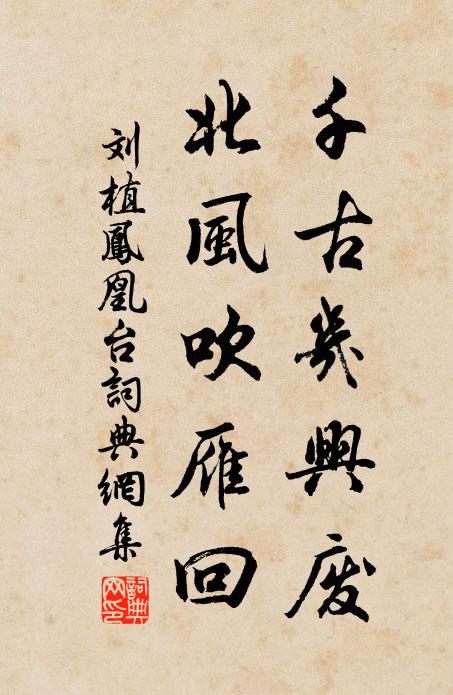 千古幾興廢
北風吹雁回
刘植鳳凰台詞典網集
詞典网印